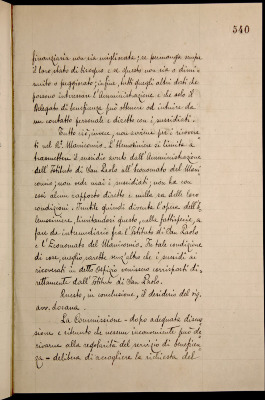 340
finanziaria non sia migliorata; se permanga sempre
il loro stato di bisogno e se questo non sia o dimi-
nuito o peggiorato; infine, tutti quegli altri dati che
possono interessare l'Amministrazione e che solo il
Delegato di beneficenza può ottenere ed intuire da
un contatto personale e diretto con i sussidiati.
Tutto ciò, invece, non avviene pei ricovera
ti nel R. Manicomio. L'Elemosiniere si limita a
trasmettere il sussidio avuto dall'Amministrazione
dell'Istituto di San Paolo all'Economato del Mani
comio; non vede mai i sussidiati; non ha con
essi alcun rapporto diretto e nulla sa delle loro
condizioni. Inutile quindi diventa l'opera dell'E
lemosiniere, limitandosi questo, nella fattispecie, a
fare da intermediario fra l'Istituto di San Paolo
e l'Economato del Manicomio. In tale condizione
di cose, meglio varrebbe senz'altro che i sussidi ai
ricoverati in detto Ospizio venissero corrisposti di-
rettamente dall'Istituto di San Paolo.
Questo, in conclusione, il desiderio del sig.
avv.
La Commissione - dopo adeguata discus
sione e ritenuto che nessun inconveniente può de
rivarne alla regolarità del servizio di beneficen
za - delibera di accogliere la richiesta del